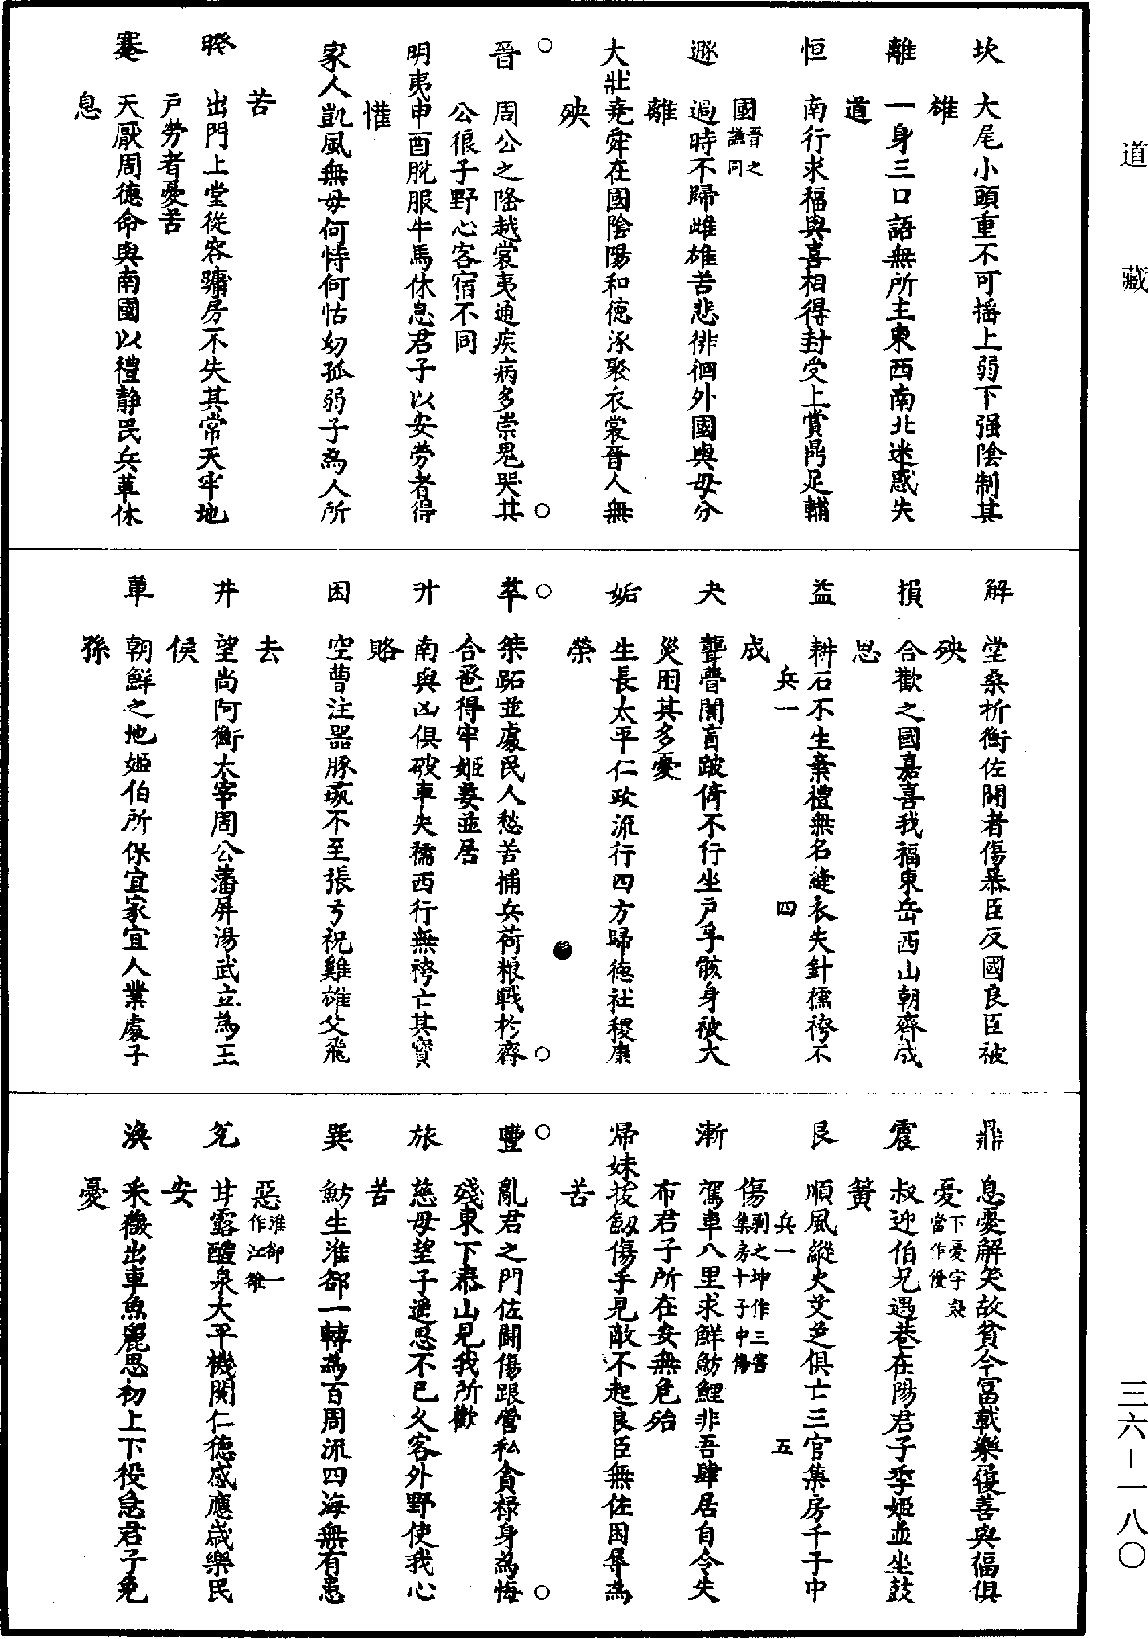 道藏
三六—一八〇
坎　大尾小頭重不可搖上弱下强陰制其
雄
離　一身三口語無所主東西南北迷惑失
道
恒　南行求福與喜相得封受上賞鼎足輔
國晉之謙同
遯　過時不歸雌雄苦悲徘徊外國與母分
離
大壯堯舜在國陰陽和德涿聚衣裳晉人無
殃
晉　周公之隆越裳夷通疾病多祟鬼哭其
公狠子野心客宿不同
明夷申酉脫服牛馬休息君子以安勞者得
懽
家人凱風無母何恃何怙幼孤弱子為人所
苦
睽　出門上堂從容牖房不失其常天牢地
戶勞者憂苦
蹇　天厭周德命與南國以禮靜民兵革休
息
解　堂桑折衝佐鬭者傷暴臣反國良臣被
殃
損　合歡之國嘉喜我福東岳西山朝齊成
思
益　耕石不生棄禮無名縫衣失針襦袴不
兵一　四
成
夬　聾瞽闇盲跛倚不行坐戶乎骸身被大
災困其多憂
姤　生長太平仁政流行四方歸德社稷康
榮
萃　桀跖並處民人愁苦捕兵荷粮戰於齊
合卺得牢姬妾並居
升　南與凶俱破車失襦西行無袴亡其寶
賂
困　空曹注器豚彘不至張弓祝雞雄父飛
去
井　望尚阿衡太宰周公藩屏湯武立為王
侯
革　朝鮮之地姬伯所保宜家宜人業處子
孫
鼎　息憂解笑故貧今富載樂履善與福俱
憂下憂字疑當作優
震　叔迎伯兄遇巷在陽君子季姬並坐鼓
簧
艮　順風縱火艾芝俱亡三官集房千子中
兵一　五
傷剥之坤作三害集房十子中傷
漸　駕車入里求鮮魴鯉非吾肆居自令失
布君子所在安無危殆
歸妹拔劔傷手見敵不起良臣無佐困辱為
苦
豐　亂君之門佐鬭傷跟營私貪禄身為悔
殘東下泰山見我所歡
旅　慈母望子遥思不已久客外野使我心
苦
巽　魴生淮郤一轉為百周流四海無有患
惡淮郤一作江淮
兌　甘露醴泉太平機關仁德感應歲樂民
安
渙　釆薇出車魚麗思初上下役急君子免
憂